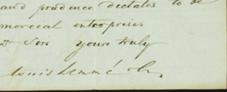 and prudence dictates to be
mercial enterprises
& Son yours truly
Louis